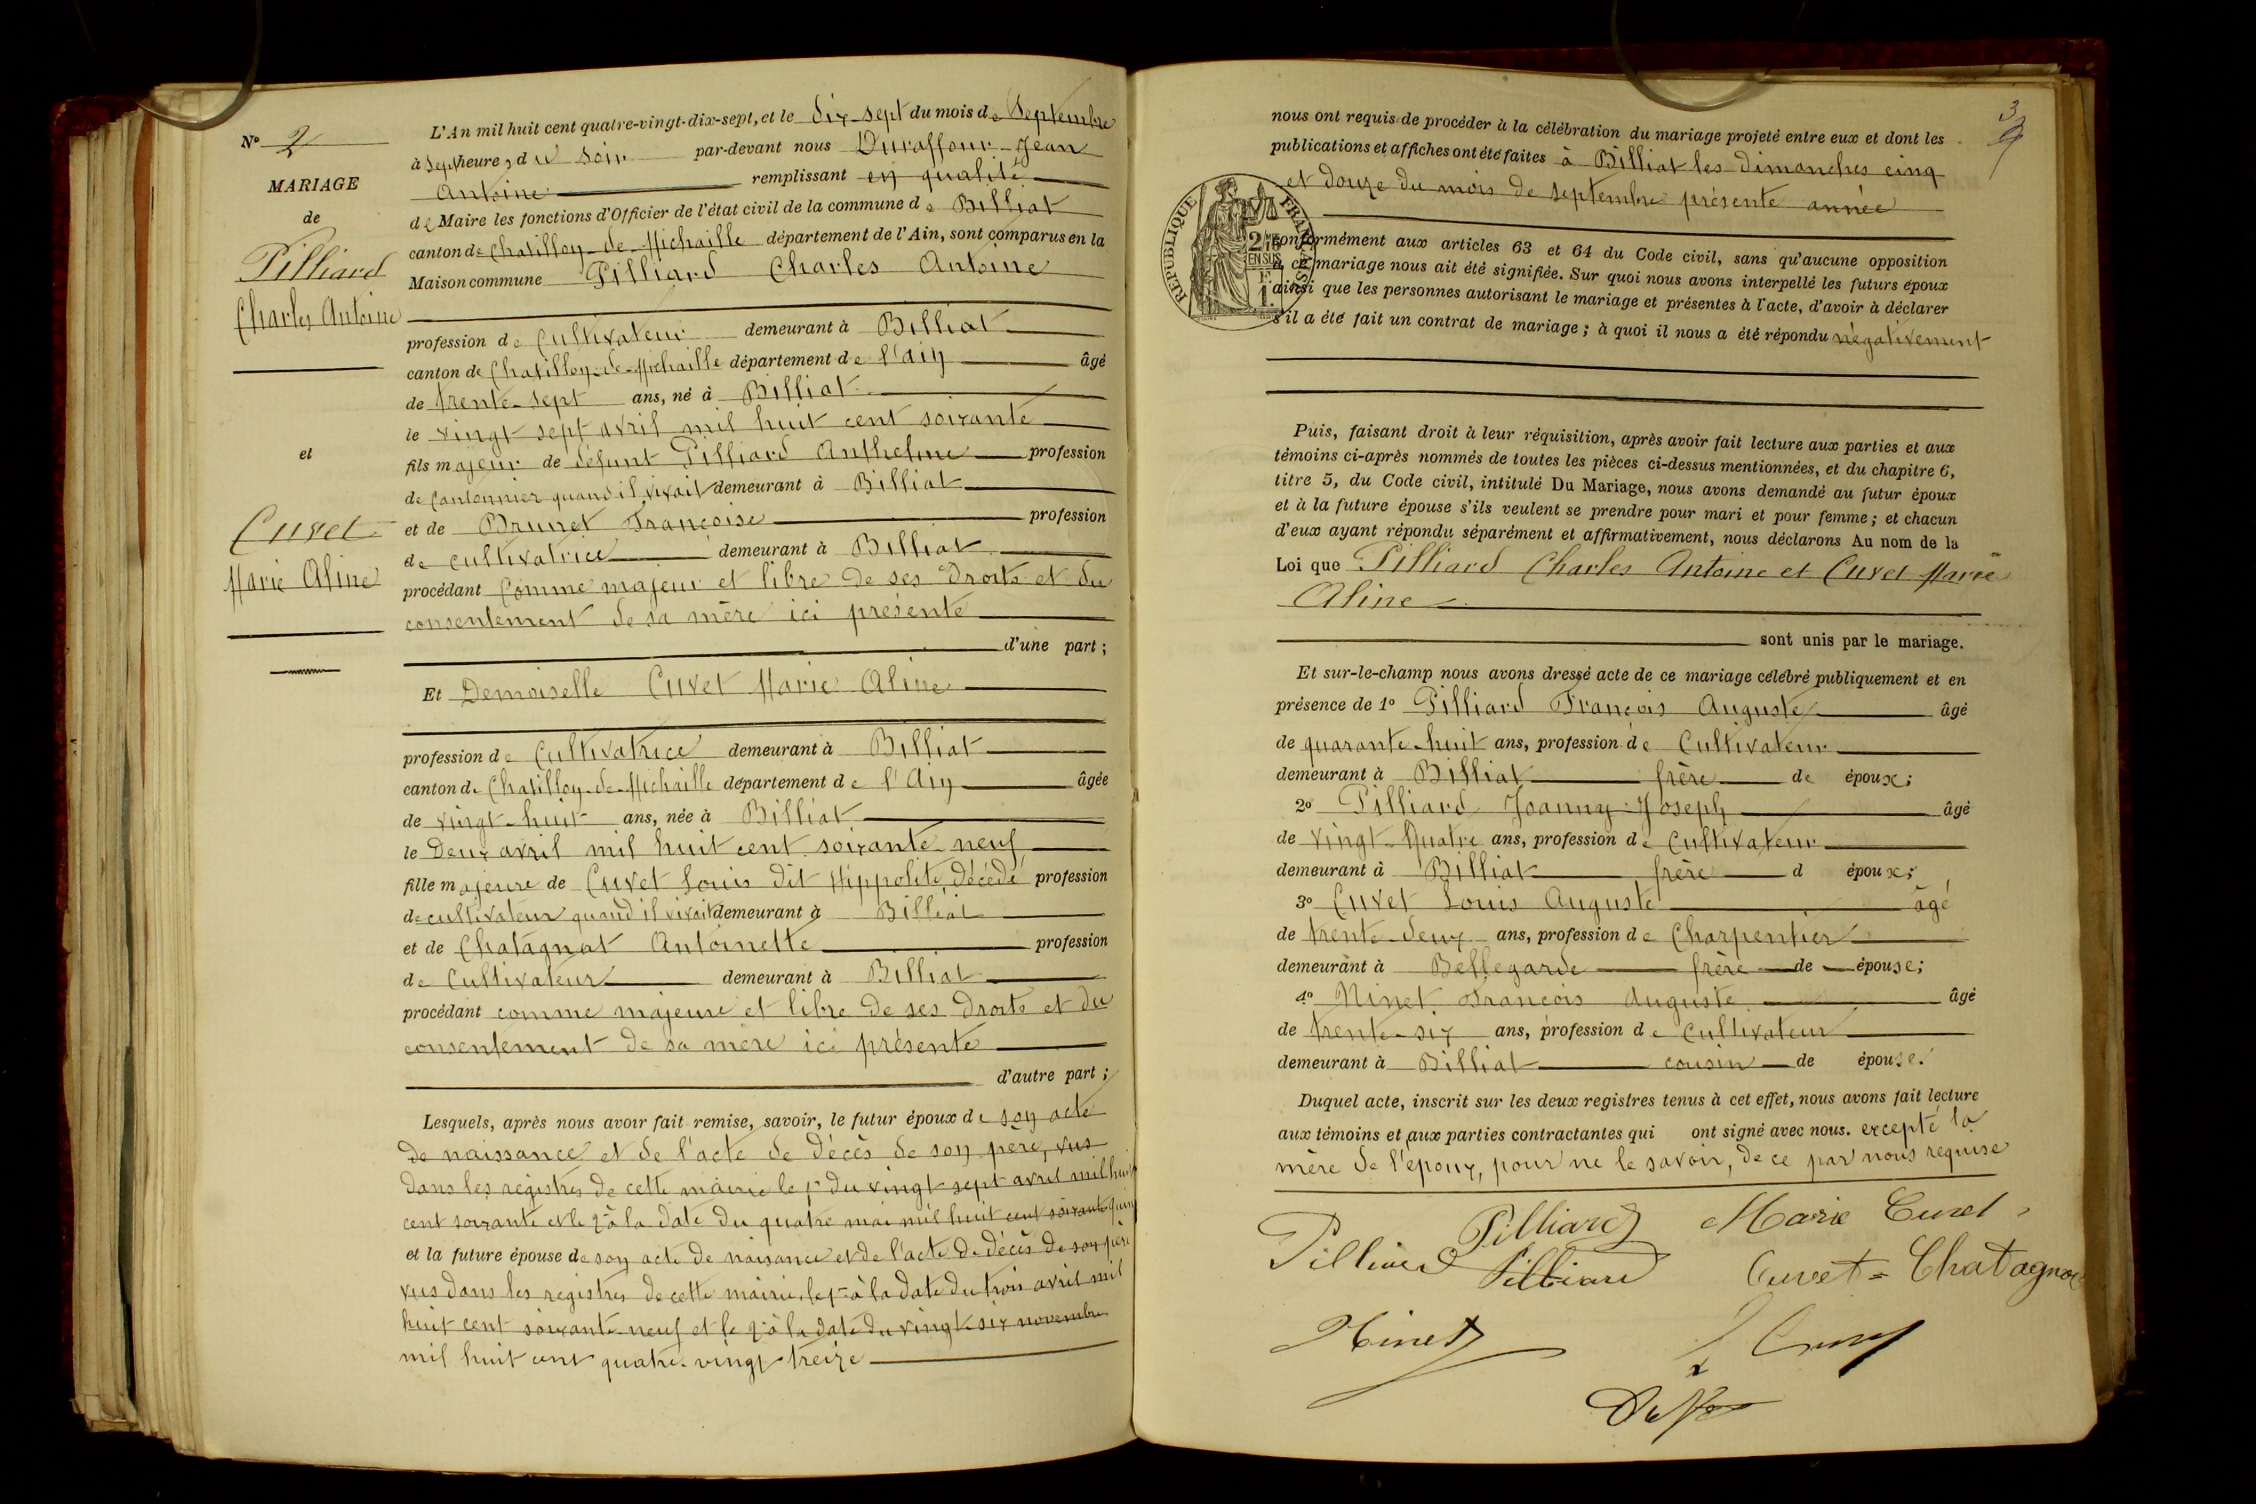 N° 2
MARIAGE
de
Pilliard
Charles Antoine
et
Cuvet
Marie Aline
L'An mil huit cent quatre-vingt-dix-sept, et le dix-sept du mois de Septembre
à sept heures du soir par-devant nous Duraffour Jean
Antoine remplissant en qualité
de Maire les fonctions d'Officier de l'état civil de la commune de Billiat
canton de Chatillon-de-Michaille département de l'Ain, sont comparus en la
Maison commune Pilliard Charles Antoine
profession de Cultivateur demeurant à Billiat
canton de Chatillon-de-Michaille département de l'Ain âgé
de trente-sept ans, né à Billiat
le vingt sept avril mil huit cent soixante
fils majeur de défunt Pilliard Anthelme profession
de Cantonnier quand il vivait demeurant à Billiat
et de Brunet Françoise profession
de cultivatrice demeurant à Billiat
procédant comme majeur et libre de ses droits et du
consentement de sa mère ici présente
d'une part ;
Et Demoiselle Cuvet Marie Aline
profession de Cultivatrice demeurant à Billiat
canton de Chatillon-de-Michaille département de l'Ain âgée
de vingt-huit ans, née à Billiat
le Deux avril mil huit cent soixante neuf
fille majeure de Cuvet Louis dit Hippolite, décédé profession
de cultivateur quand il vivait demeurant à Billiat
et de Chatagnat Antoinette profession
de Cultivateur demeurant à Billiat
procédant comme majeure et libre de ses droits et du
consentement de sa mère ici présente
d'autre part ;
Lesquels, après nous avoir fait remise, savoir, le futur époux de son acte
de naissance et de l'acte de décès de son père, vus
dans les registres de cette mairie le 1er du vingt sept avril mil huit
cent soixante et le 2e à la date du quatre mai mil huit cent soixante
et la future épouse de son acte de naissance et de l'acte de décès de son père
vus dans les registres de cette mairie, le 1er à la date du trois avril mil
huit cent soixante neuf et le 2e à la date du vingt-six novembre
mil huit cent quatre-vingt treize
3
nous ont requis de procéder à la célébration du mariage projeté entre eux et dont les
publications et affiches ont été faites à Billiat les dimanches cinq
et douze du mois de septembre présente année
RÉPUBLIQUE FRANÇAISE
EN SUS
conformément aux articles 63 et 64 du Code civil, sans qu'aucune opposition
à ce mariage nous ait été signifiée. Sur quoi nous avons interpellé les futurs époux
ainsi que les personnes autorisant le mariage et présentes à l'acte, d'avoir à déclarer
s'il a été fait un contrat de mariage ; à quoi il nous a été répondu négativement
Puis, faisant droit à leur réquisition, après avoir fait lecture aux parties et aux
témoins ci-après nommés de toutes les pièces ci-dessus mentionnées, et du chapitre 6,
titre 5, du Code civil, intitulé Du Mariage, nous avons demandé au futur époux
et à la future épouse s'ils veulent se prendre pour mari et pour femme ; et chacun
d'eux ayant répondu séparément et affirmativement, nous déclarons Au nom de la
Loi que Pilliard Charles Antoine et Cuvet Marie
Aline
sont unis par le mariage.
Et sur-le-champ nous avons dressé acte de ce mariage célébré publiquement et en
présence de 1° Pilliard François Auguste âgé
de quarante-huit ans, profession de Cultivateur
demeurant à Billiat frère de époux ;
2° Pilliard Joanny Joseph âgé
de vingt-quatre ans, profession de Cultivateur
demeurant à Billiat frère d époux ;
3° Cuvet Louis Auguste âgé
de trente-deux ans, profession de Charpentier
demeurant à Bellegarde frère de épouse ;
4° Ninet François Auguste âgé
de trente-six ans, profession de cultivateur
demeurant à Billiat cousin de épouse.
Duquel acte, inscrit sur les deux registres tenus à cet effet, nous avons fait lecture
aux témoins et aux parties contractantes qui ont signé avec nous. excepté la
mère de l'époux, pour ne le savoir, de ce par nous requise
Pilliard Marie Cuvet
Pilliard Pilliard Cuvet = Chatagnat
Ninet